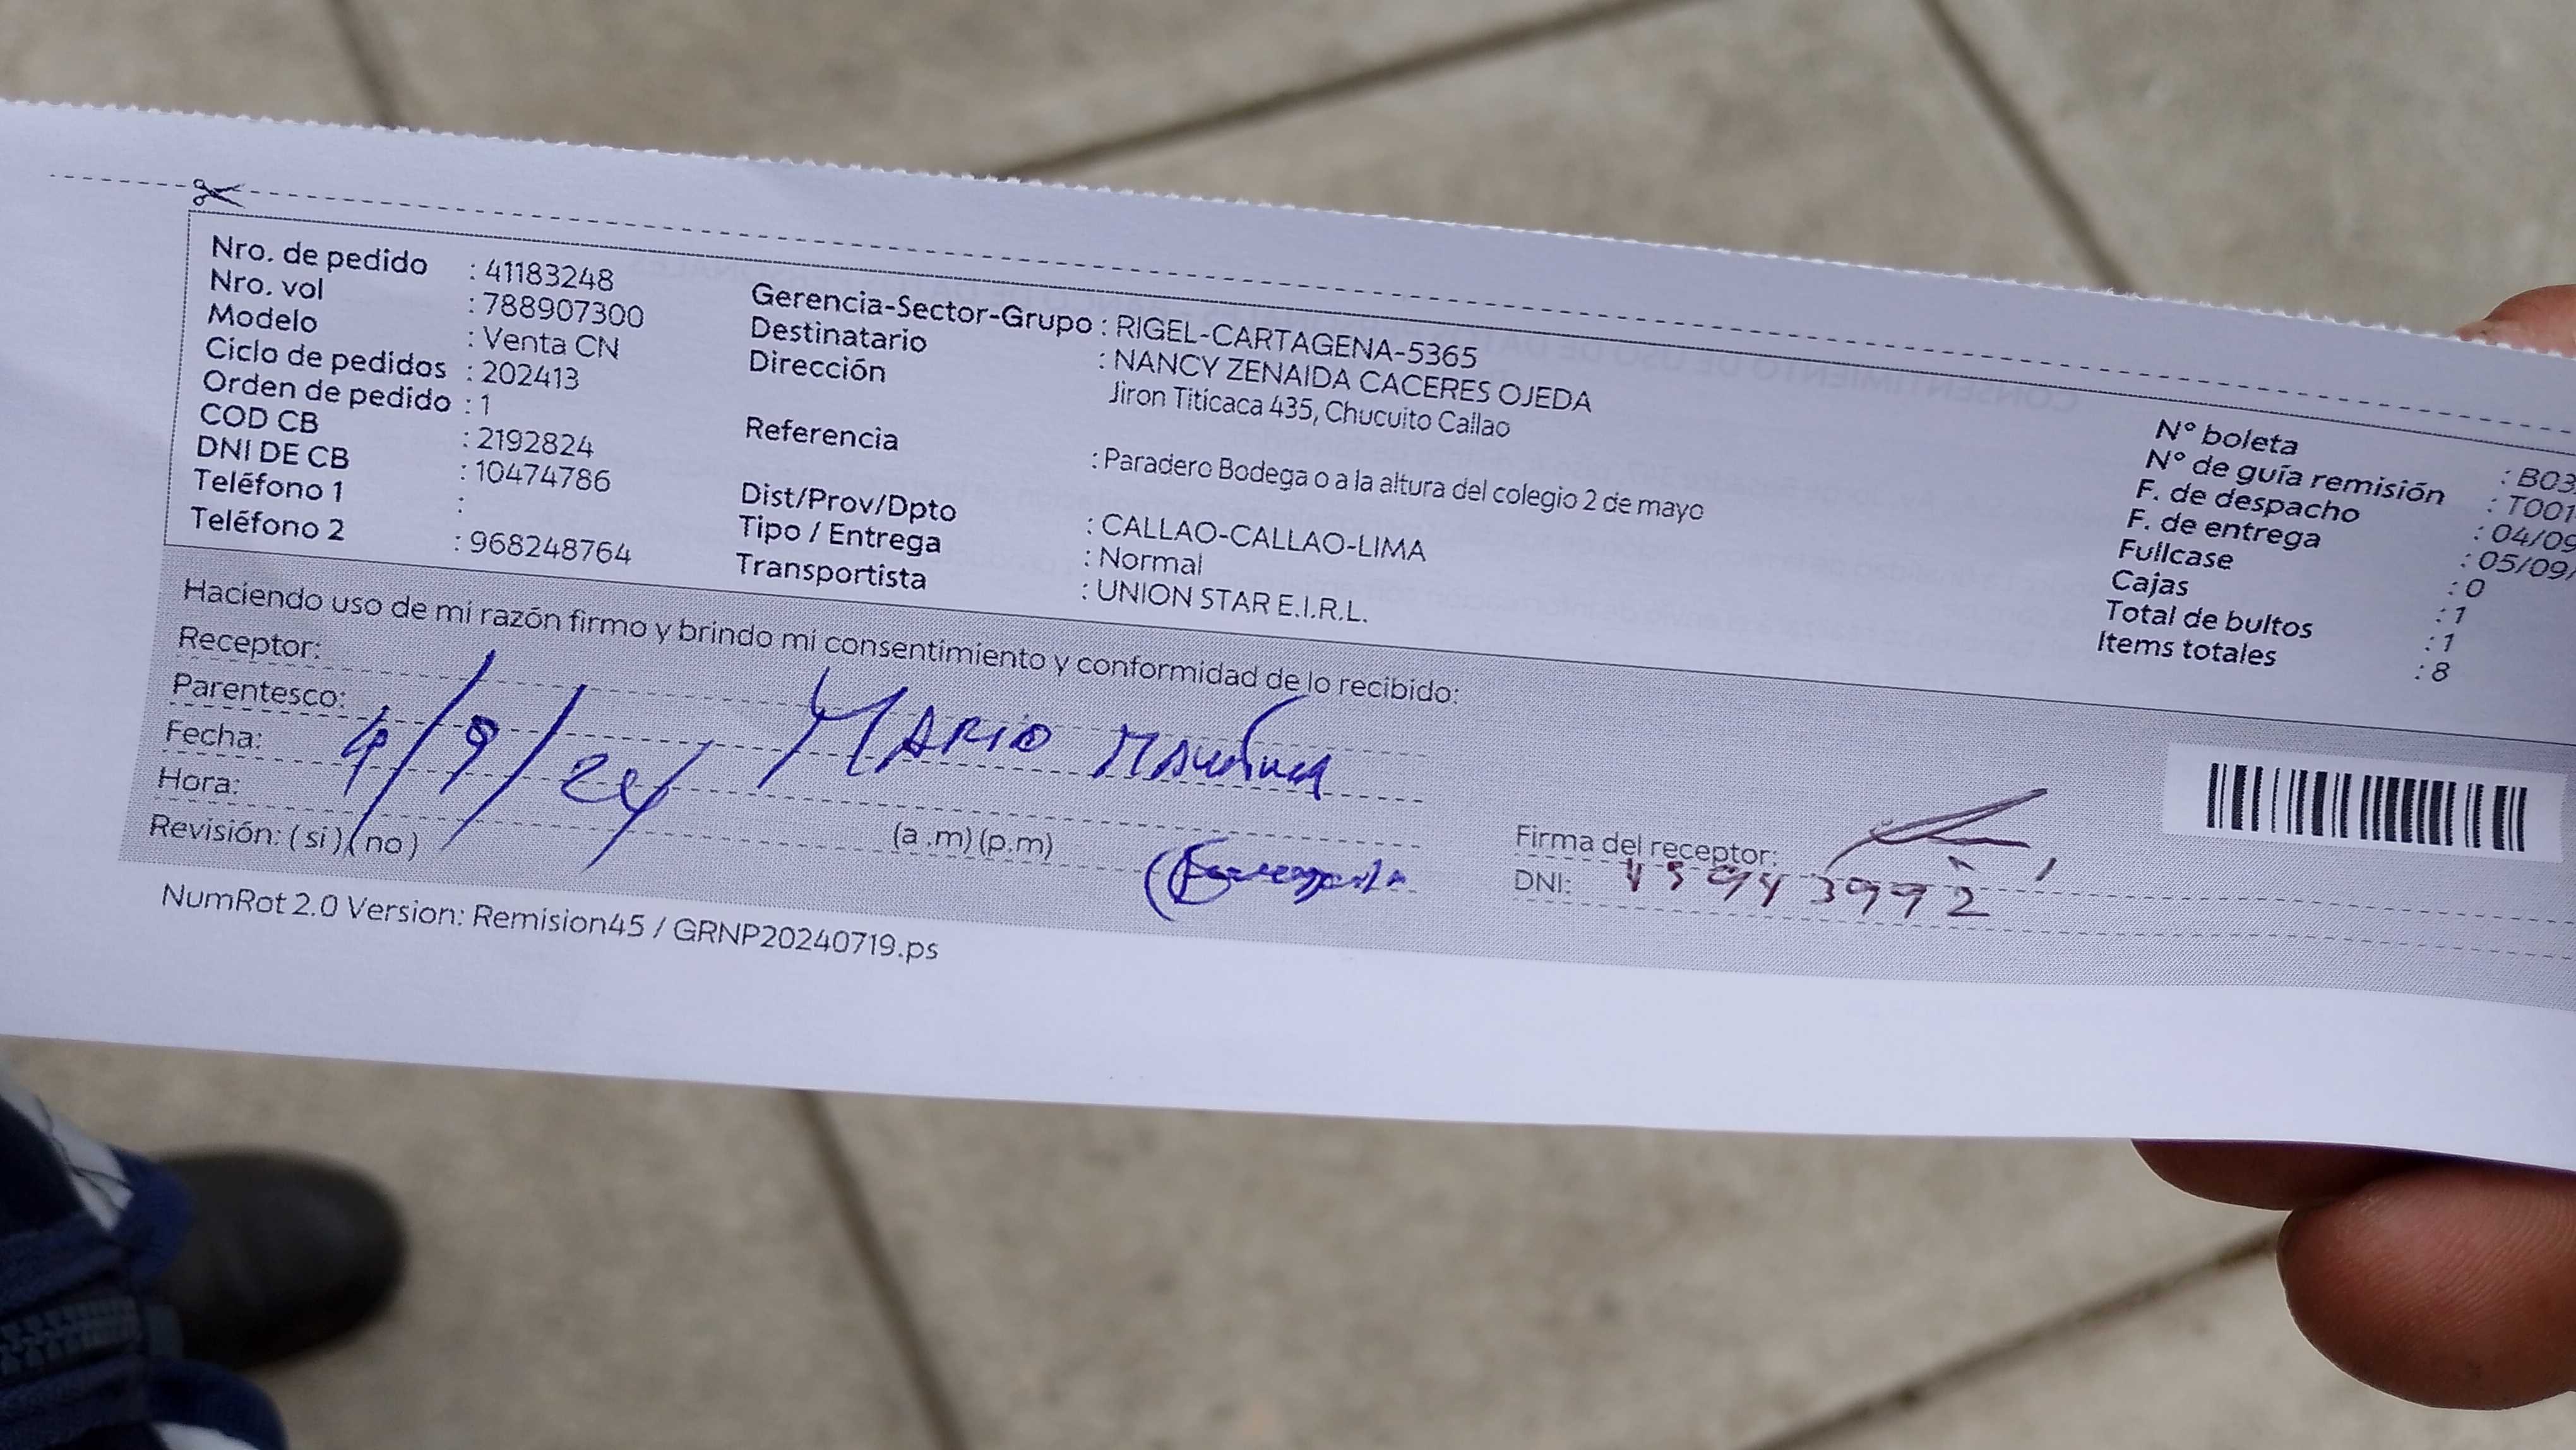 Nro. de pedido : 41183248
Nro. vol : 788907300
Modelo : Venta CN
Ciclo de pedidos : 202413
Orden de pedido : 1
COD CB : 2192824
DNI DE CB : 10474786
Teléfono 1 :
Teléfono 2 : 968248764
Gerencia-Sector-Grupo : RIGEL-CARTAGENA-5365
Destinatario : NANCY ZENAIDA CACERES OJEDA
Dirección Jiron Titicaca 435, Chucuito Callao
Referencia : Paradero Bodega o a la altura del colegio 2 de mayo
Dist/Prov/Dpto : CALLAO-CALLAO-LIMA
Tipo / Entrega : Normal
Transportista : UNION STAR E.I.R.L.
N° boleta : B03
N° de guía remisión : T001
F. de despacho : 04/09
F. de entrega : 05/09/
Fullcase : 0
Cajas : 1
Total de bultos : 1
Items totales : 8
Haciendo uso de mi razón firmo y brindo mi consentimiento y conformidad de lo recibido:
Receptor:
Parentesco: MARIO
Fecha: 4/9/24
Hora: (a .m) (p.m)
Revisión: ( si ) ( no )
Firma del receptor:
DNI: 45943992
NumRot 2.0 Version: Remision45 / GRNP20240719.ps